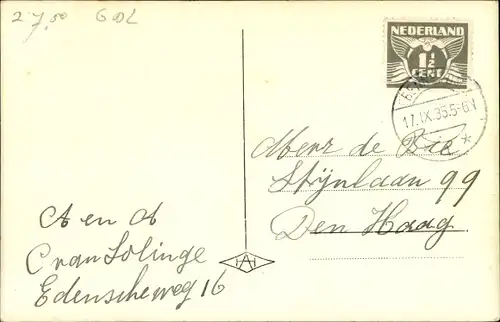 27,50 GDL
NEDERLAND
1½
CENT
17.IX.35.5-6N
Mevr de Bie
Stijnlaan 99
Den Haag
A en A
C van Solinge
Edenscheweg 16